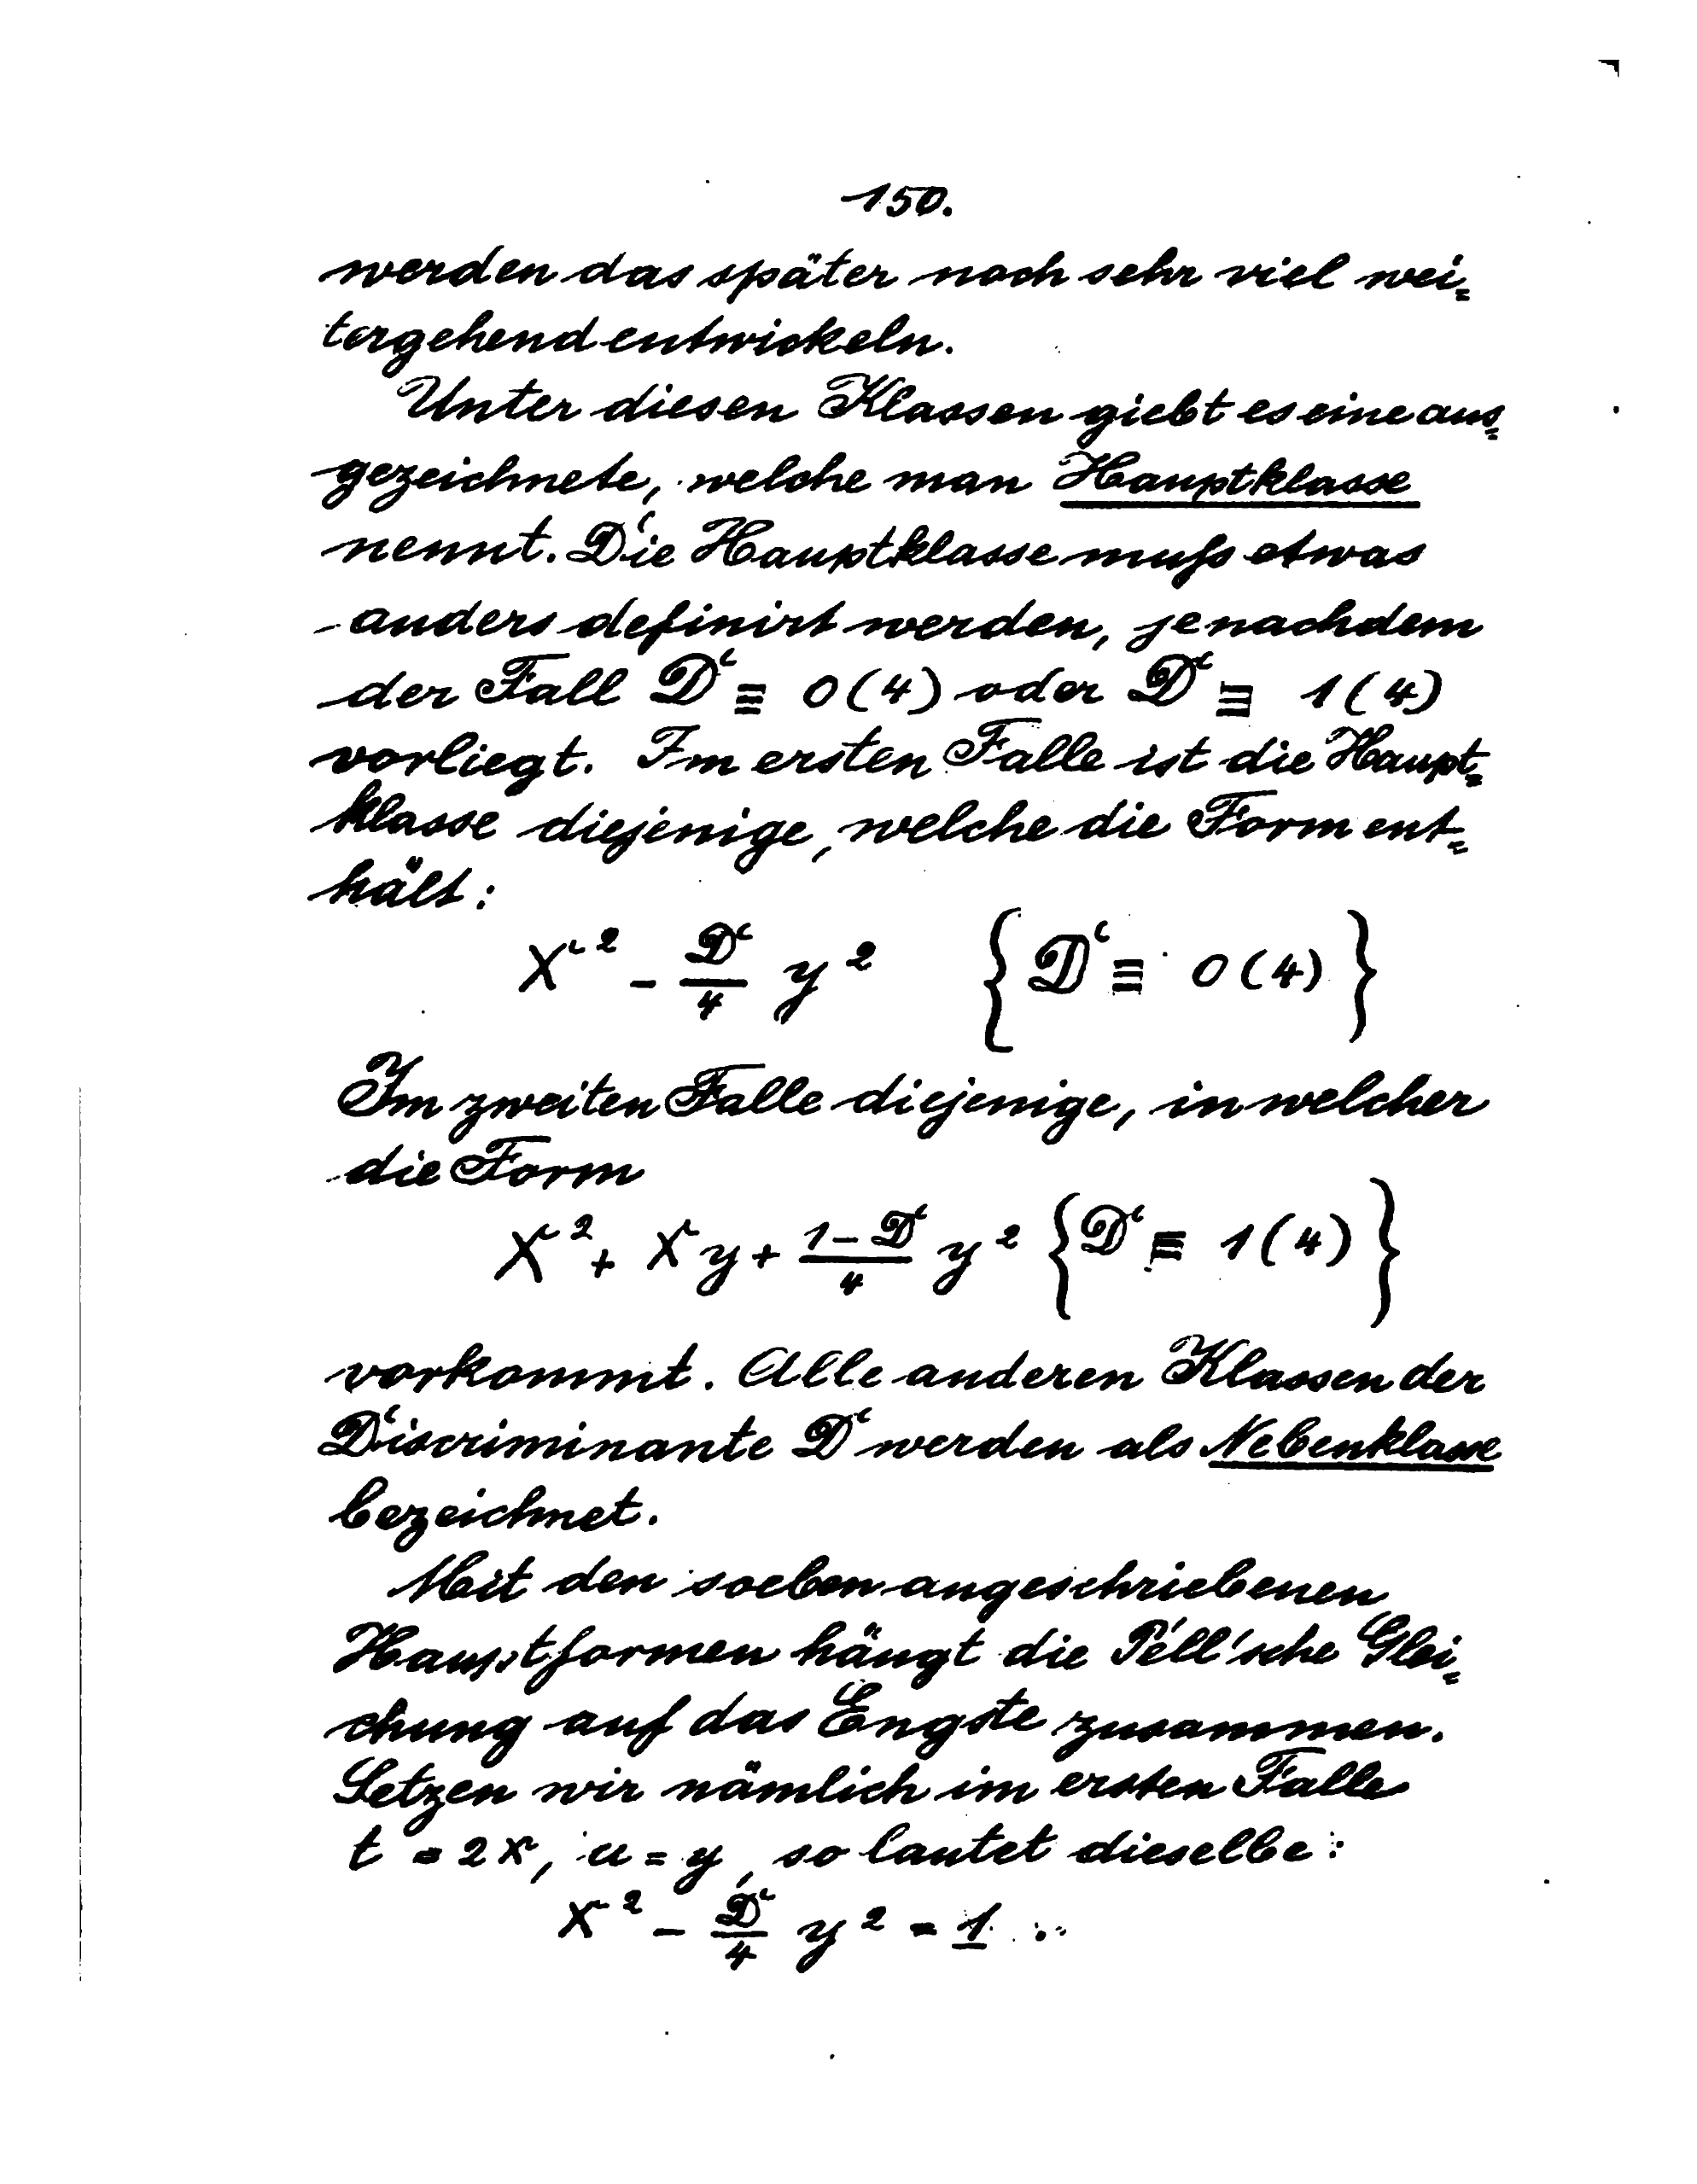 150.
werden das später noch sehr viel wei=
tergehend entwickeln.
Unter diesen Klassen giebt es eine aus=
gezeichnete, welche man Hauptklasse
nennt. Die Hauptklasse muß etwas
anders definirt werden, jenachdem
der Fall D ≡ 0 (4) oder D ≡ 1 (4)
vorliegt. Im ersten Falle ist die Haupt=
klasse diejenige, welche die Form ent=
hält:
x² - D/4 y² { D ≡ 0 (4) }
Im zweiten Falle diejenige, in welcher
die Form
x² + xy + (1-D)/4 y² { D ≡ 1 (4) }
vorkommt. Alle anderen Klassen der
Discriminante D werden als Nebenklasse
bezeichnet.
Mit den soeben angeschriebenen
Hauptformen hängt die Pell'sche Glei=
chung auf das Engste zusammen.
Setzen wir nämlich im ersten Falle
t = 2x, u = y, so lautet dieselbe:
x² - D/4 y² = 1